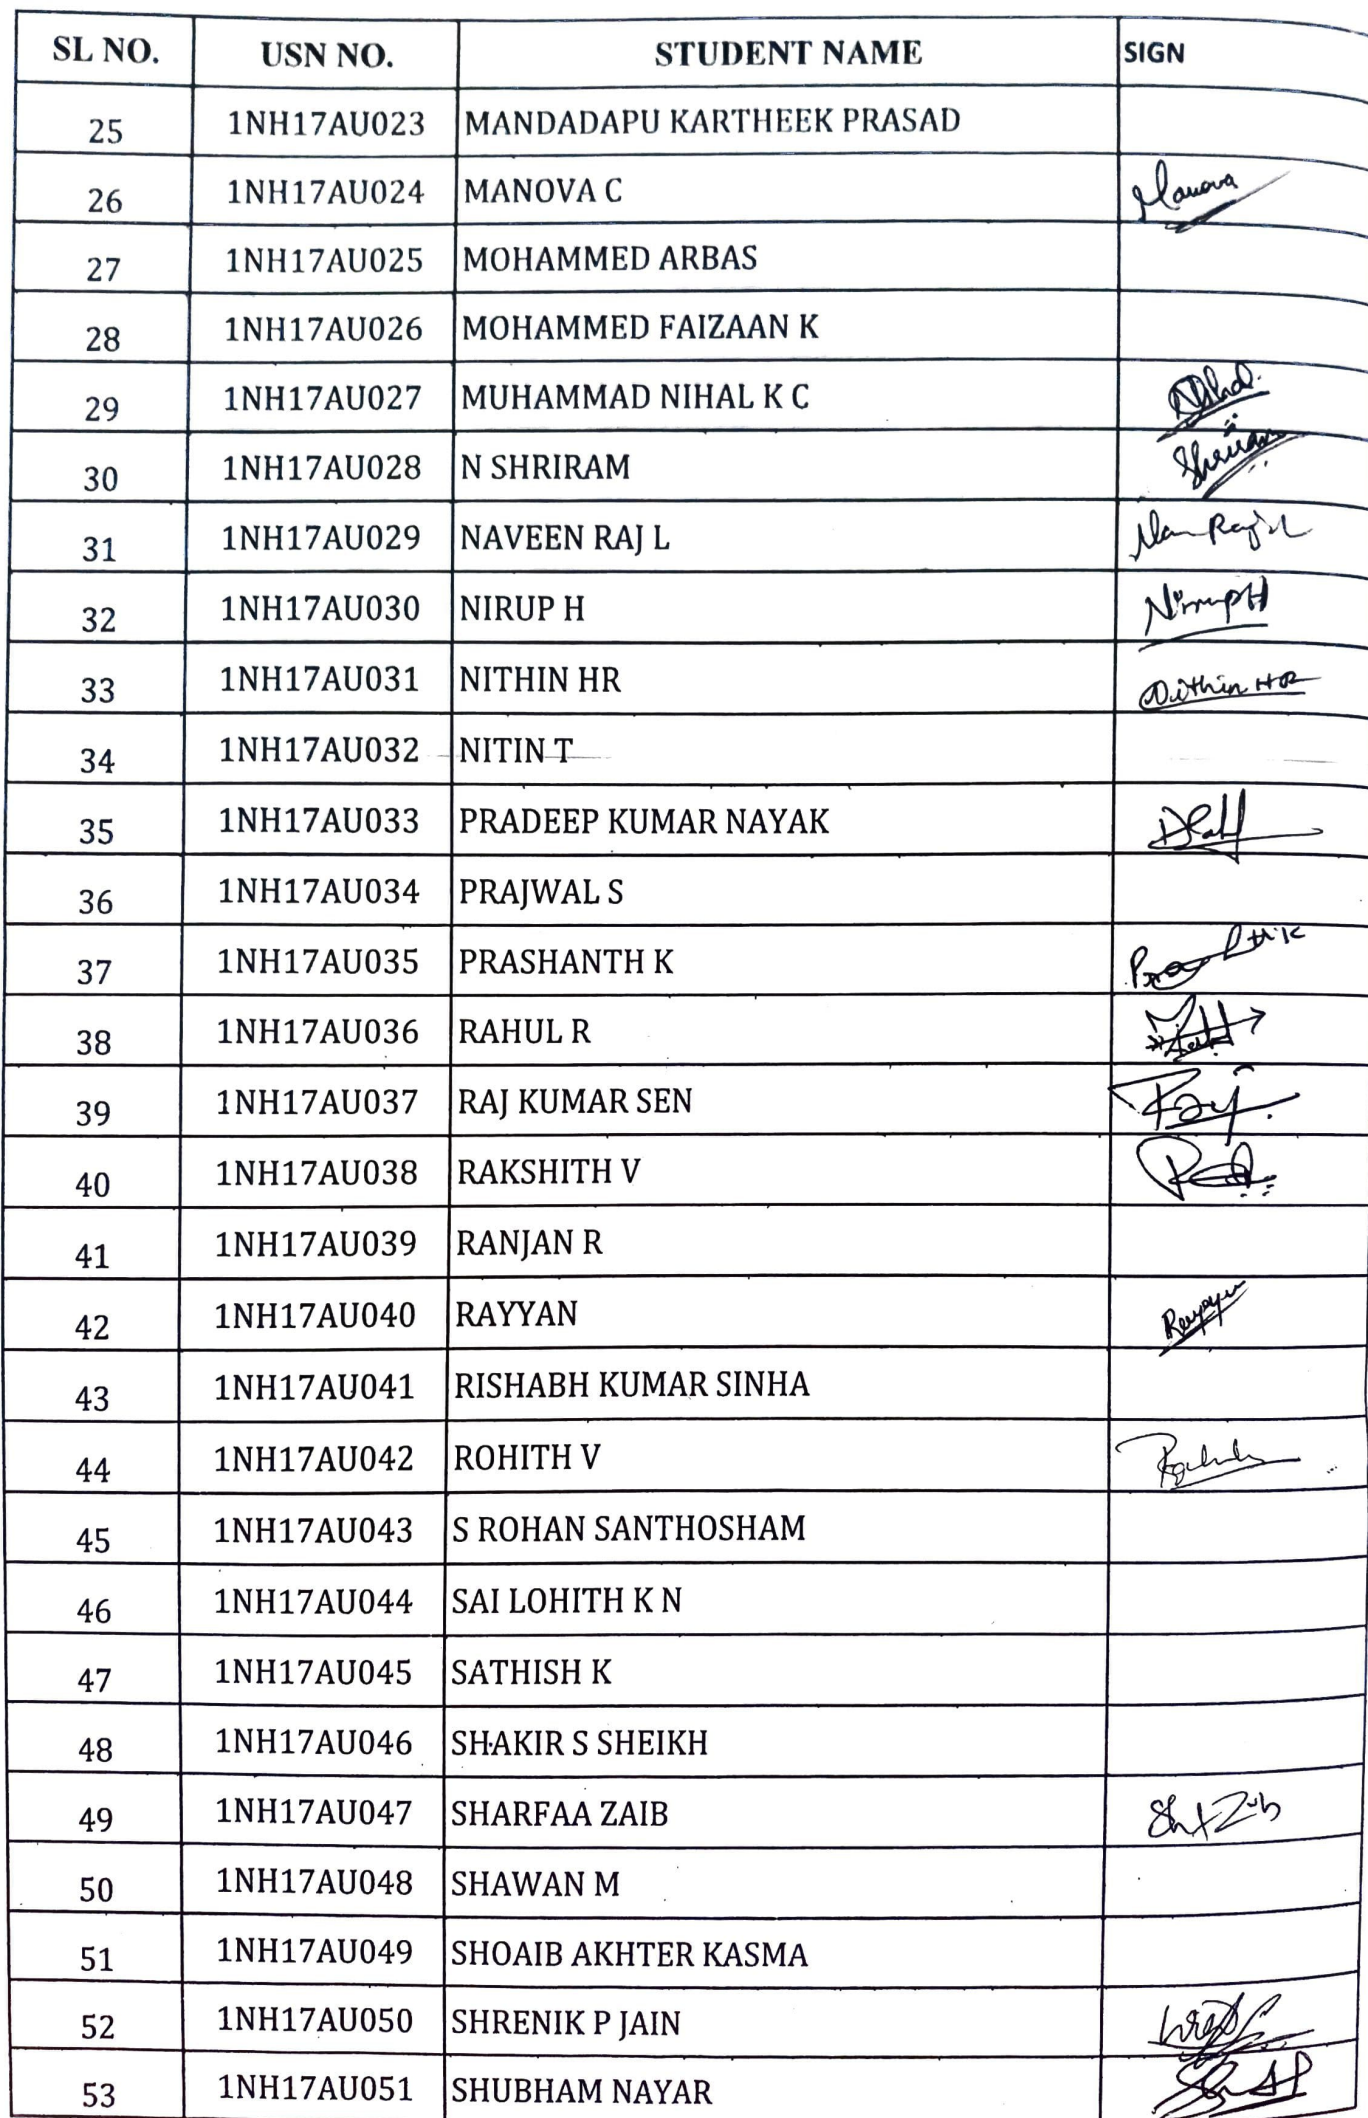 SL NO. USN NO. STUDENT NAME SIGN
25 1NH17AU023 MANDADAPU KARTHEEK PRASAD
26 1NH17AU024 MANOVA C Manova
27 1NH17AU025 MOHAMMED ARBAS
28 1NH17AU026 MOHAMMED FAIZAAN K
29 1NH17AU027 MUHAMMAD NIHAL K C
30 1NH17AU028 N SHRIRAM Shriram
31 1NH17AU029 NAVEEN RAJ L
32 1NH17AU030 NIRUP H Nirup H
33 1NH17AU031 NITHIN HR Nithin HR
34 1NH17AU032 NITIN T
35 1NH17AU033 PRADEEP KUMAR NAYAK
36 1NH17AU034 PRAJWAL S
37 1NH17AU035 PRASHANTH K
38 1NH17AU036 RAHUL R
39 1NH17AU037 RAJ KUMAR SEN Raj
40 1NH17AU038 RAKSHITH V
41 1NH17AU039 RANJAN R
42 1NH17AU040 RAYYAN Rayyan
43 1NH17AU041 RISHABH KUMAR SINHA
44 1NH17AU042 ROHITH V
45 1NH17AU043 S ROHAN SANTHOSHAM
46 1NH17AU044 SAI LOHITH K N
47 1NH17AU045 SATHISH K
48 1NH17AU046 SHAKIR S SHEIKH
49 1NH17AU047 SHARFAA ZAIB
50 1NH17AU048 SHAWAN M
51 1NH17AU049 SHOAIB AKHTER KASMA
52 1NH17AU050 SHRENIK P JAIN
53 1NH17AU051 SHUBHAM NAYAR